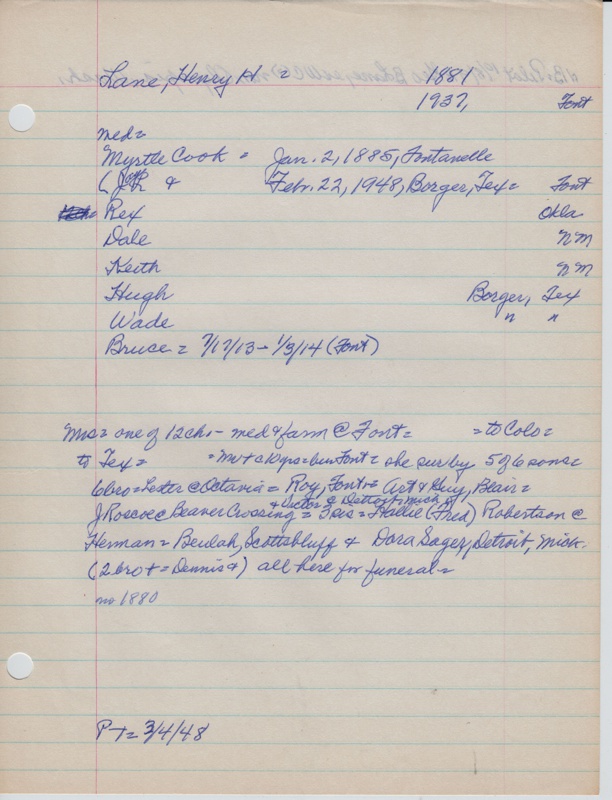 Lane, Henry H = 1881
1937, Font
med=
Myrtle Cook = Jan. 2, 1885, Fontanelle
( & Feb. 22, 1948, Borger, Tex= Font
Rex Okla
Dale NM
Keith NM
Hugh Borger, Tex
Wade " "
Bruce = 7/17/13 - 1/3/14 (Font)
Mrs= one of 12chs- med & farm @ Font= =to Colo=
to Tex= = she sur by 5 of 6 sons=
6bro=Lester @ Octavia = Roy, Font= Art & Guy, Blair=
& Victor @ Detroit, Mich
J Roscoe @ Beaver Crossing = 3sis = Hallie (Fred) Robertson @
Herman = Beulah, Scottsbluff & Dora Sager, Detroit, Mich.
(2bro += Dennis &) all here for funeral=
no 1880
P T= 3/4/48